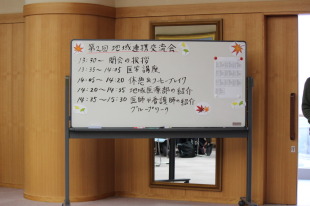 第2回 地域連携交流会
13:30～ 開会の挨拶
13:35～14:05 医学講座
14:05～14:20 休憩&コーヒーブレイク
14:20～14:25 地域医療部の紹介
14:25～15:30 医師や看護師の紹介
グループワーク